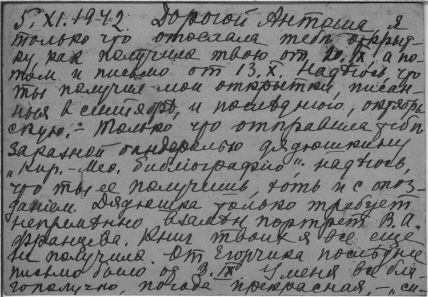 5.XI.1942. Дорогой Антоша, я
только что отослала тебе открыт-
ку, как получила твою от 20.IX, а по-
том и письмо от 13.X. Надеюсь, что
ты получил мои открытки, писан-
ныя в сентябре, и последнюю, октябрь-
скую. – Только что отправила тебе
заказной бандеролью дядюшкину
"Кир.-Меф. библиографию", надеюсь
что ты ее получишь, хоть и с опоз-
данием. Дядюшка только требует
непременно взамен портрет В.А.
Францева. Книг твоих я все еще
не получила. От Егорчика последнее
письмо было от 3.IX. У меня все бла-
гополучно, погода прекрасная, –